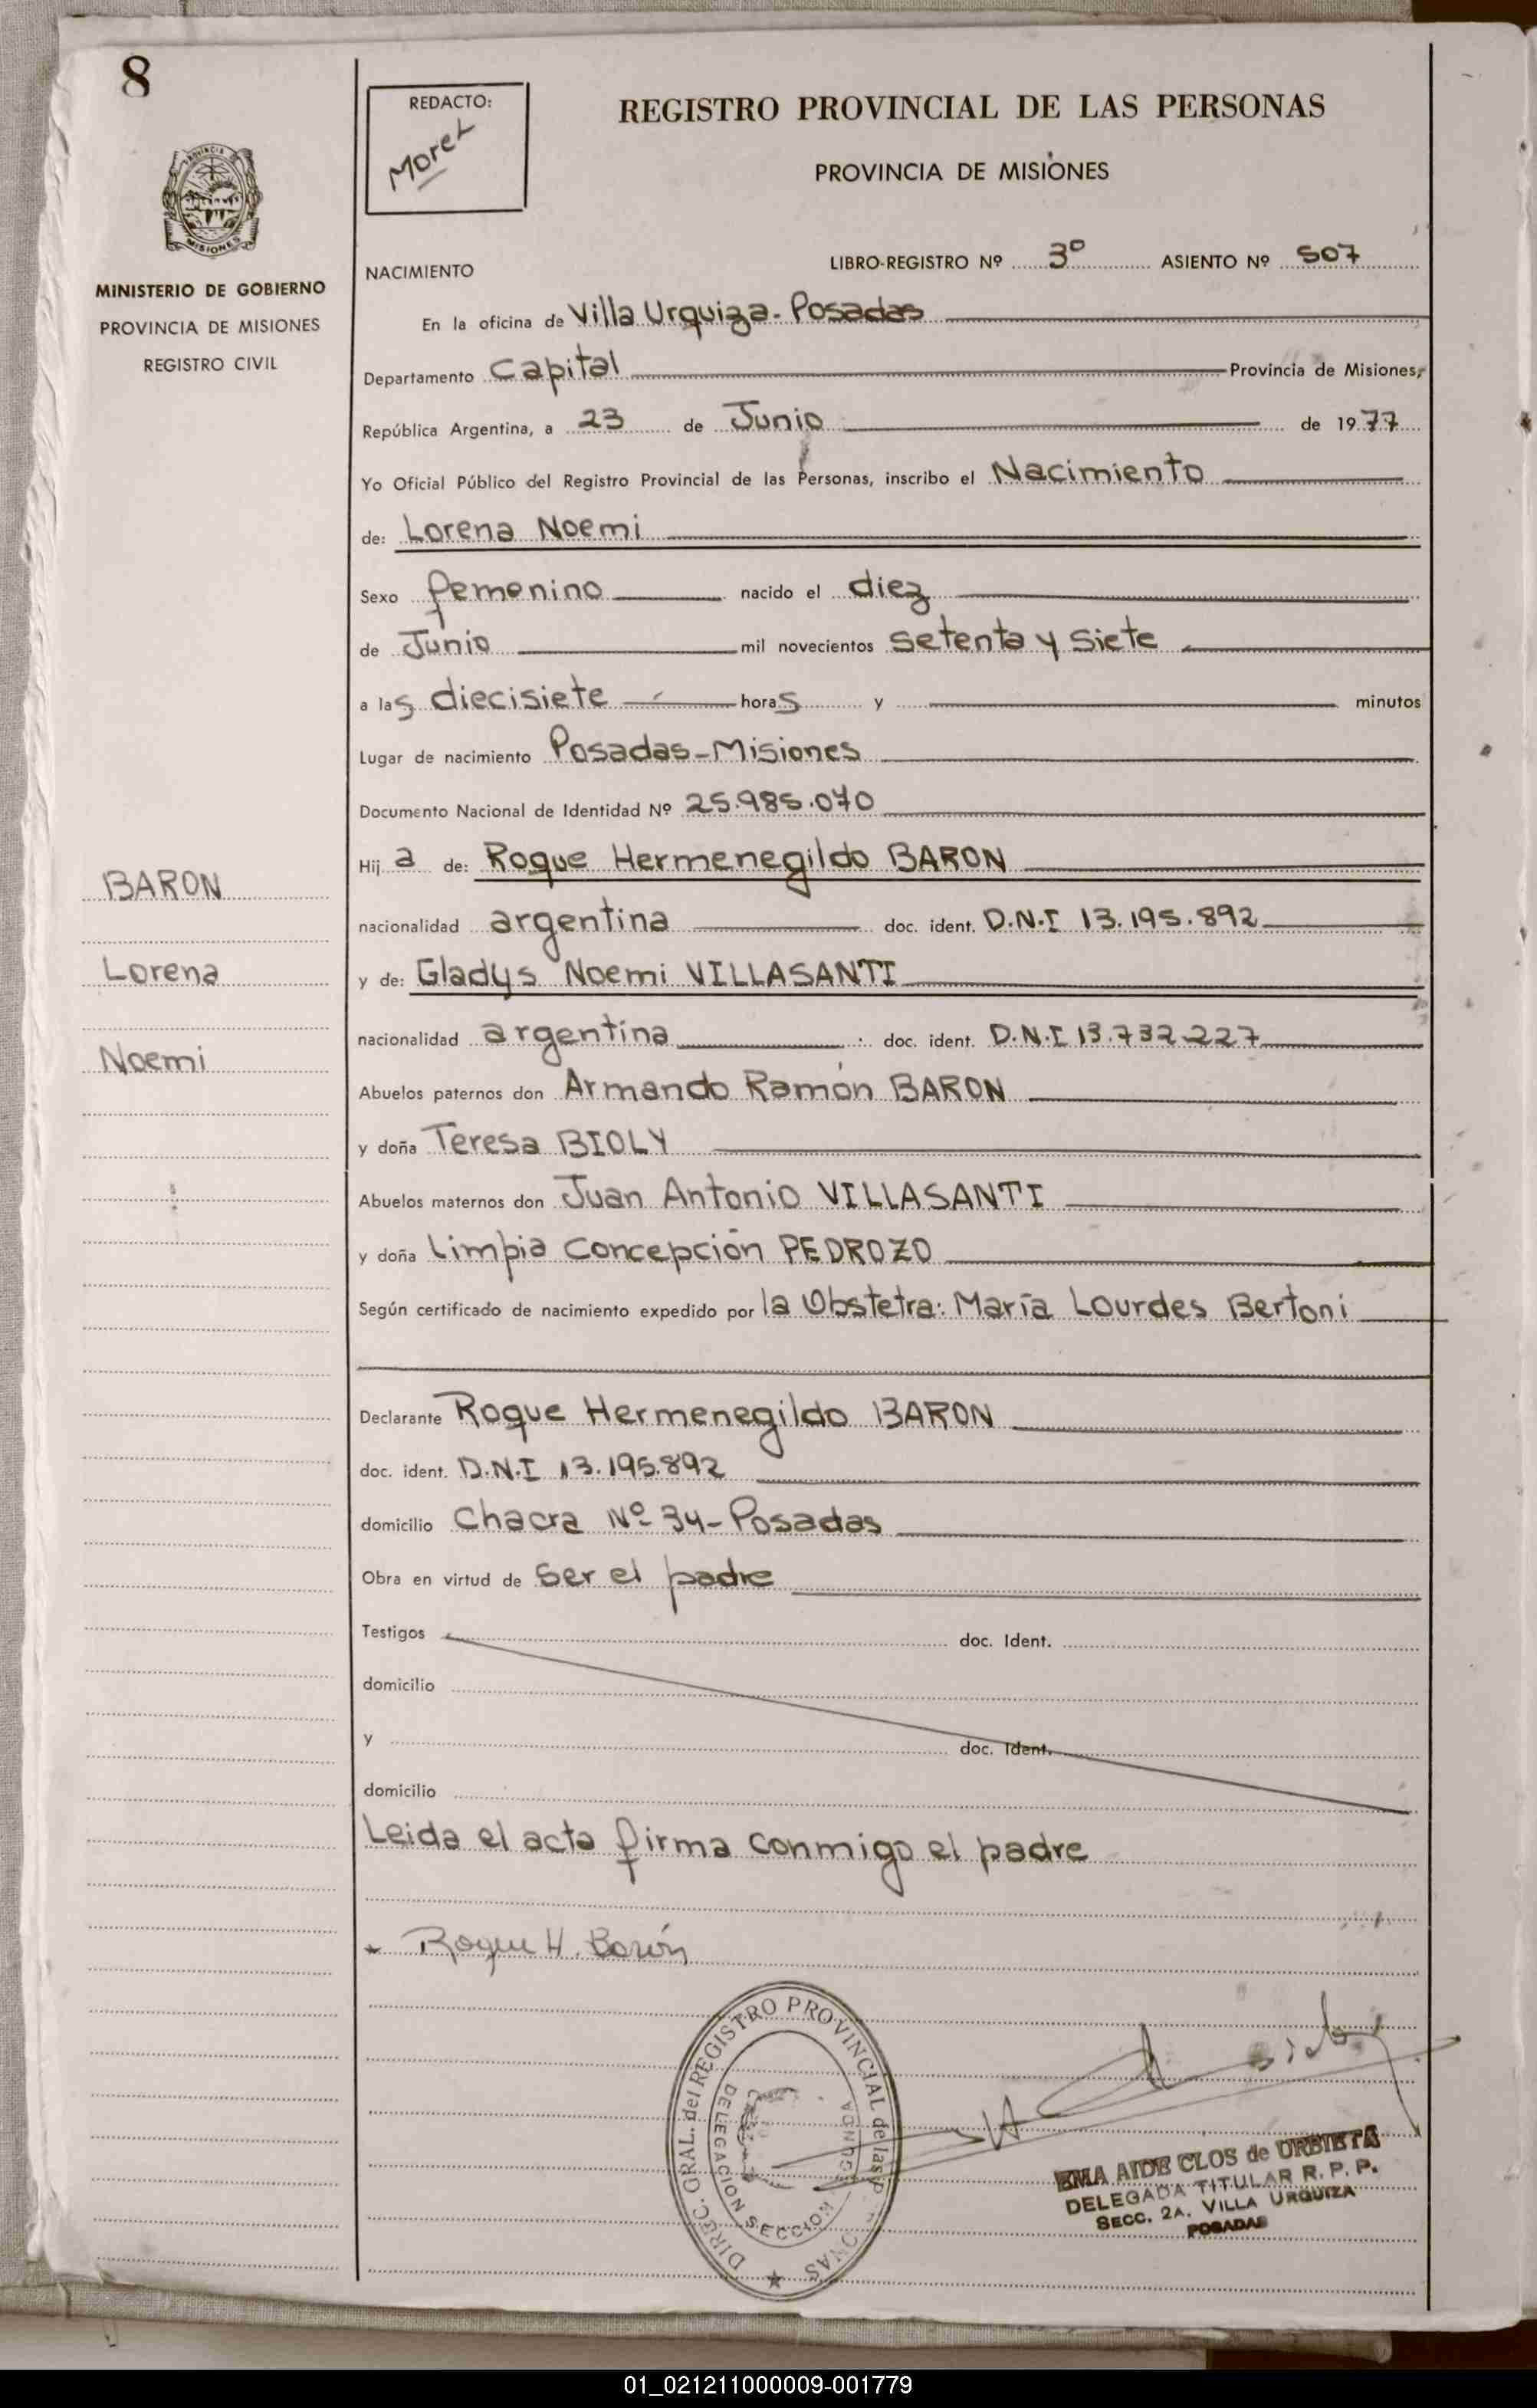 8
REDACTO:
Morel
REGISTRO PROVINCIAL DE LAS PERSONAS
PROVINCIA DE MISIONES
PROVINCIA
MISIONES
MINISTERIO DE GOBIERNO
PROVINCIA DE MISIONES
REGISTRO CIVIL
LIBRO-REGISTRO Nº 3º ASIENTO Nº 507
NACIMIENTO
En la oficina de Villa Urquiza-Posadas
Departamento Capital Provincia de Misiones,
República Argentina, a 23 de Junio de 1977
Yo Oficial Público del Registro Provincial de las Personas, inscribo el Nacimiento
de: Lorena Noemi
Sexo femenino nacido el diez
de Junio mil novecientos setenta y siete
a las diecisiete horas y minutos
Lugar de nacimiento Posadas-Misiones
Documento Nacional de Identidad Nº 25.985.070
Hija de: Roque Hermenegildo BARON
BARON
nacionalidad argentina doc. ident. D.N.I 13.195.892
Lorena
y de: Gladys Noemi VILLASANTI
nacionalidad argentina doc. ident. D.N.I 13.732.227
Noemi
Abuelos paternos don Armando Ramón BARON
y doña Teresa BIOLY
Abuelos maternos don Juan Antonio VILLASANTI
y doña Limpia Concepción PEDROZO
Según certificado de nacimiento expedido por la Obstetra: María Lourdes Bertoni
Declarante Roque Hermenegildo BARON
doc. ident. D.N.I 13.195.892
domicilio Chacra Nº 34-Posadas
Obra en virtud de ser el padre
Testigos doc. Ident.
domicilio
y doc. Ident.
domicilio
Leida el acta firma conmigo el padre
Roque H. Barón
DIREC. GRAL. del REGISTRO PROVINCIAL de las
DELEGACION SECCION
EMA AIDE CLOS de URBIETA
DELEGADA TITULAR R. P. P.
SECC. 2A. VILLA URQUIZA
POSADAS
01_021211000009-001779